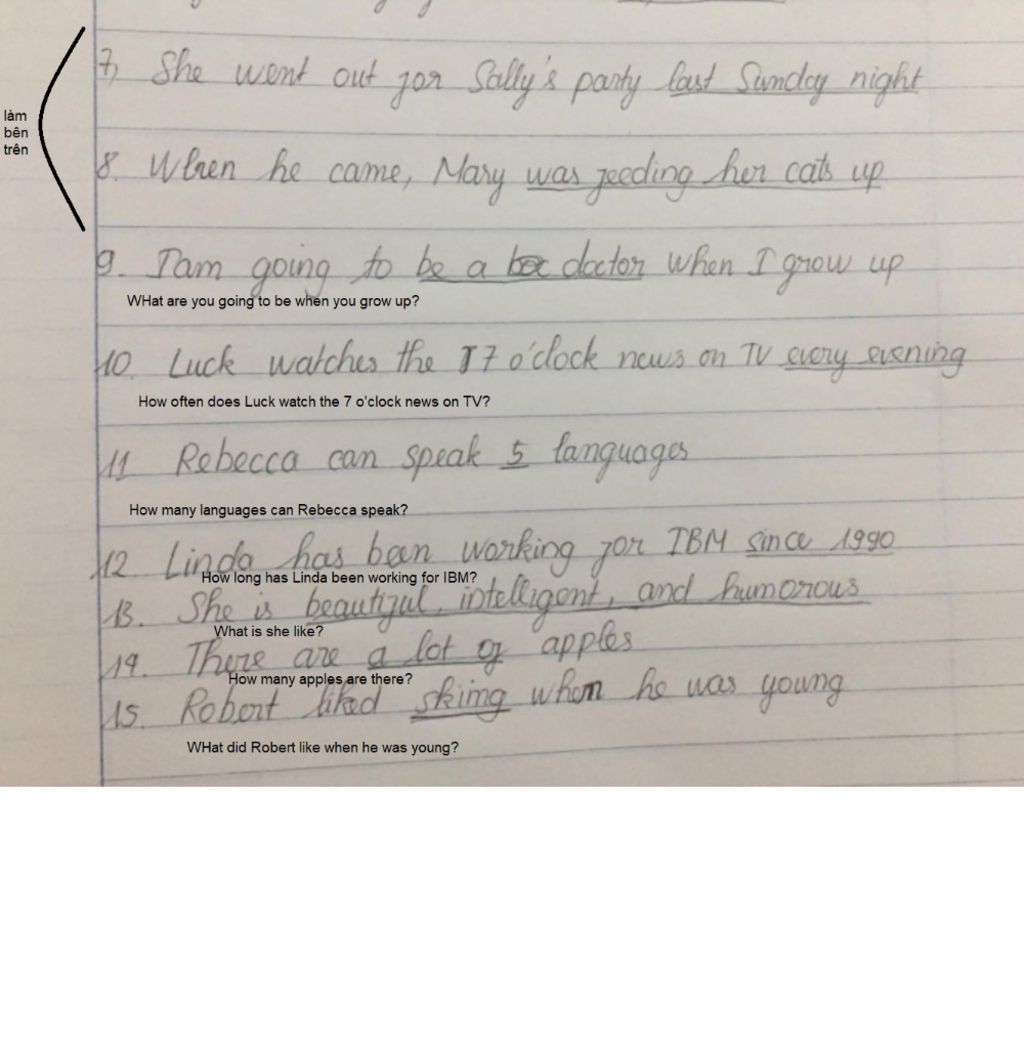 7, She went out for Sally's party last Sunday night
làm
bên
trên
8. When he came, Mary was feeding her cats up
9. I am going to be a doctor when I grow up
WHat are you going to be when you grow up?
10. Luck watches the 7 o'clock news on TV every evening
How often does Luck watch the 7 o'clock news on TV?
11 Rebecca can speak 5 languages
How many languages can Rebecca speak?
12. Linda has been working for IBM since 1990
How long has Linda been working for IBM?
13. She is beautiful, intelligent, and humorous
What is she like?
14. There are a lot of apples
How many apples are there?
15. Robert liked skiing when he was young
WHat did Robert like when he was young?